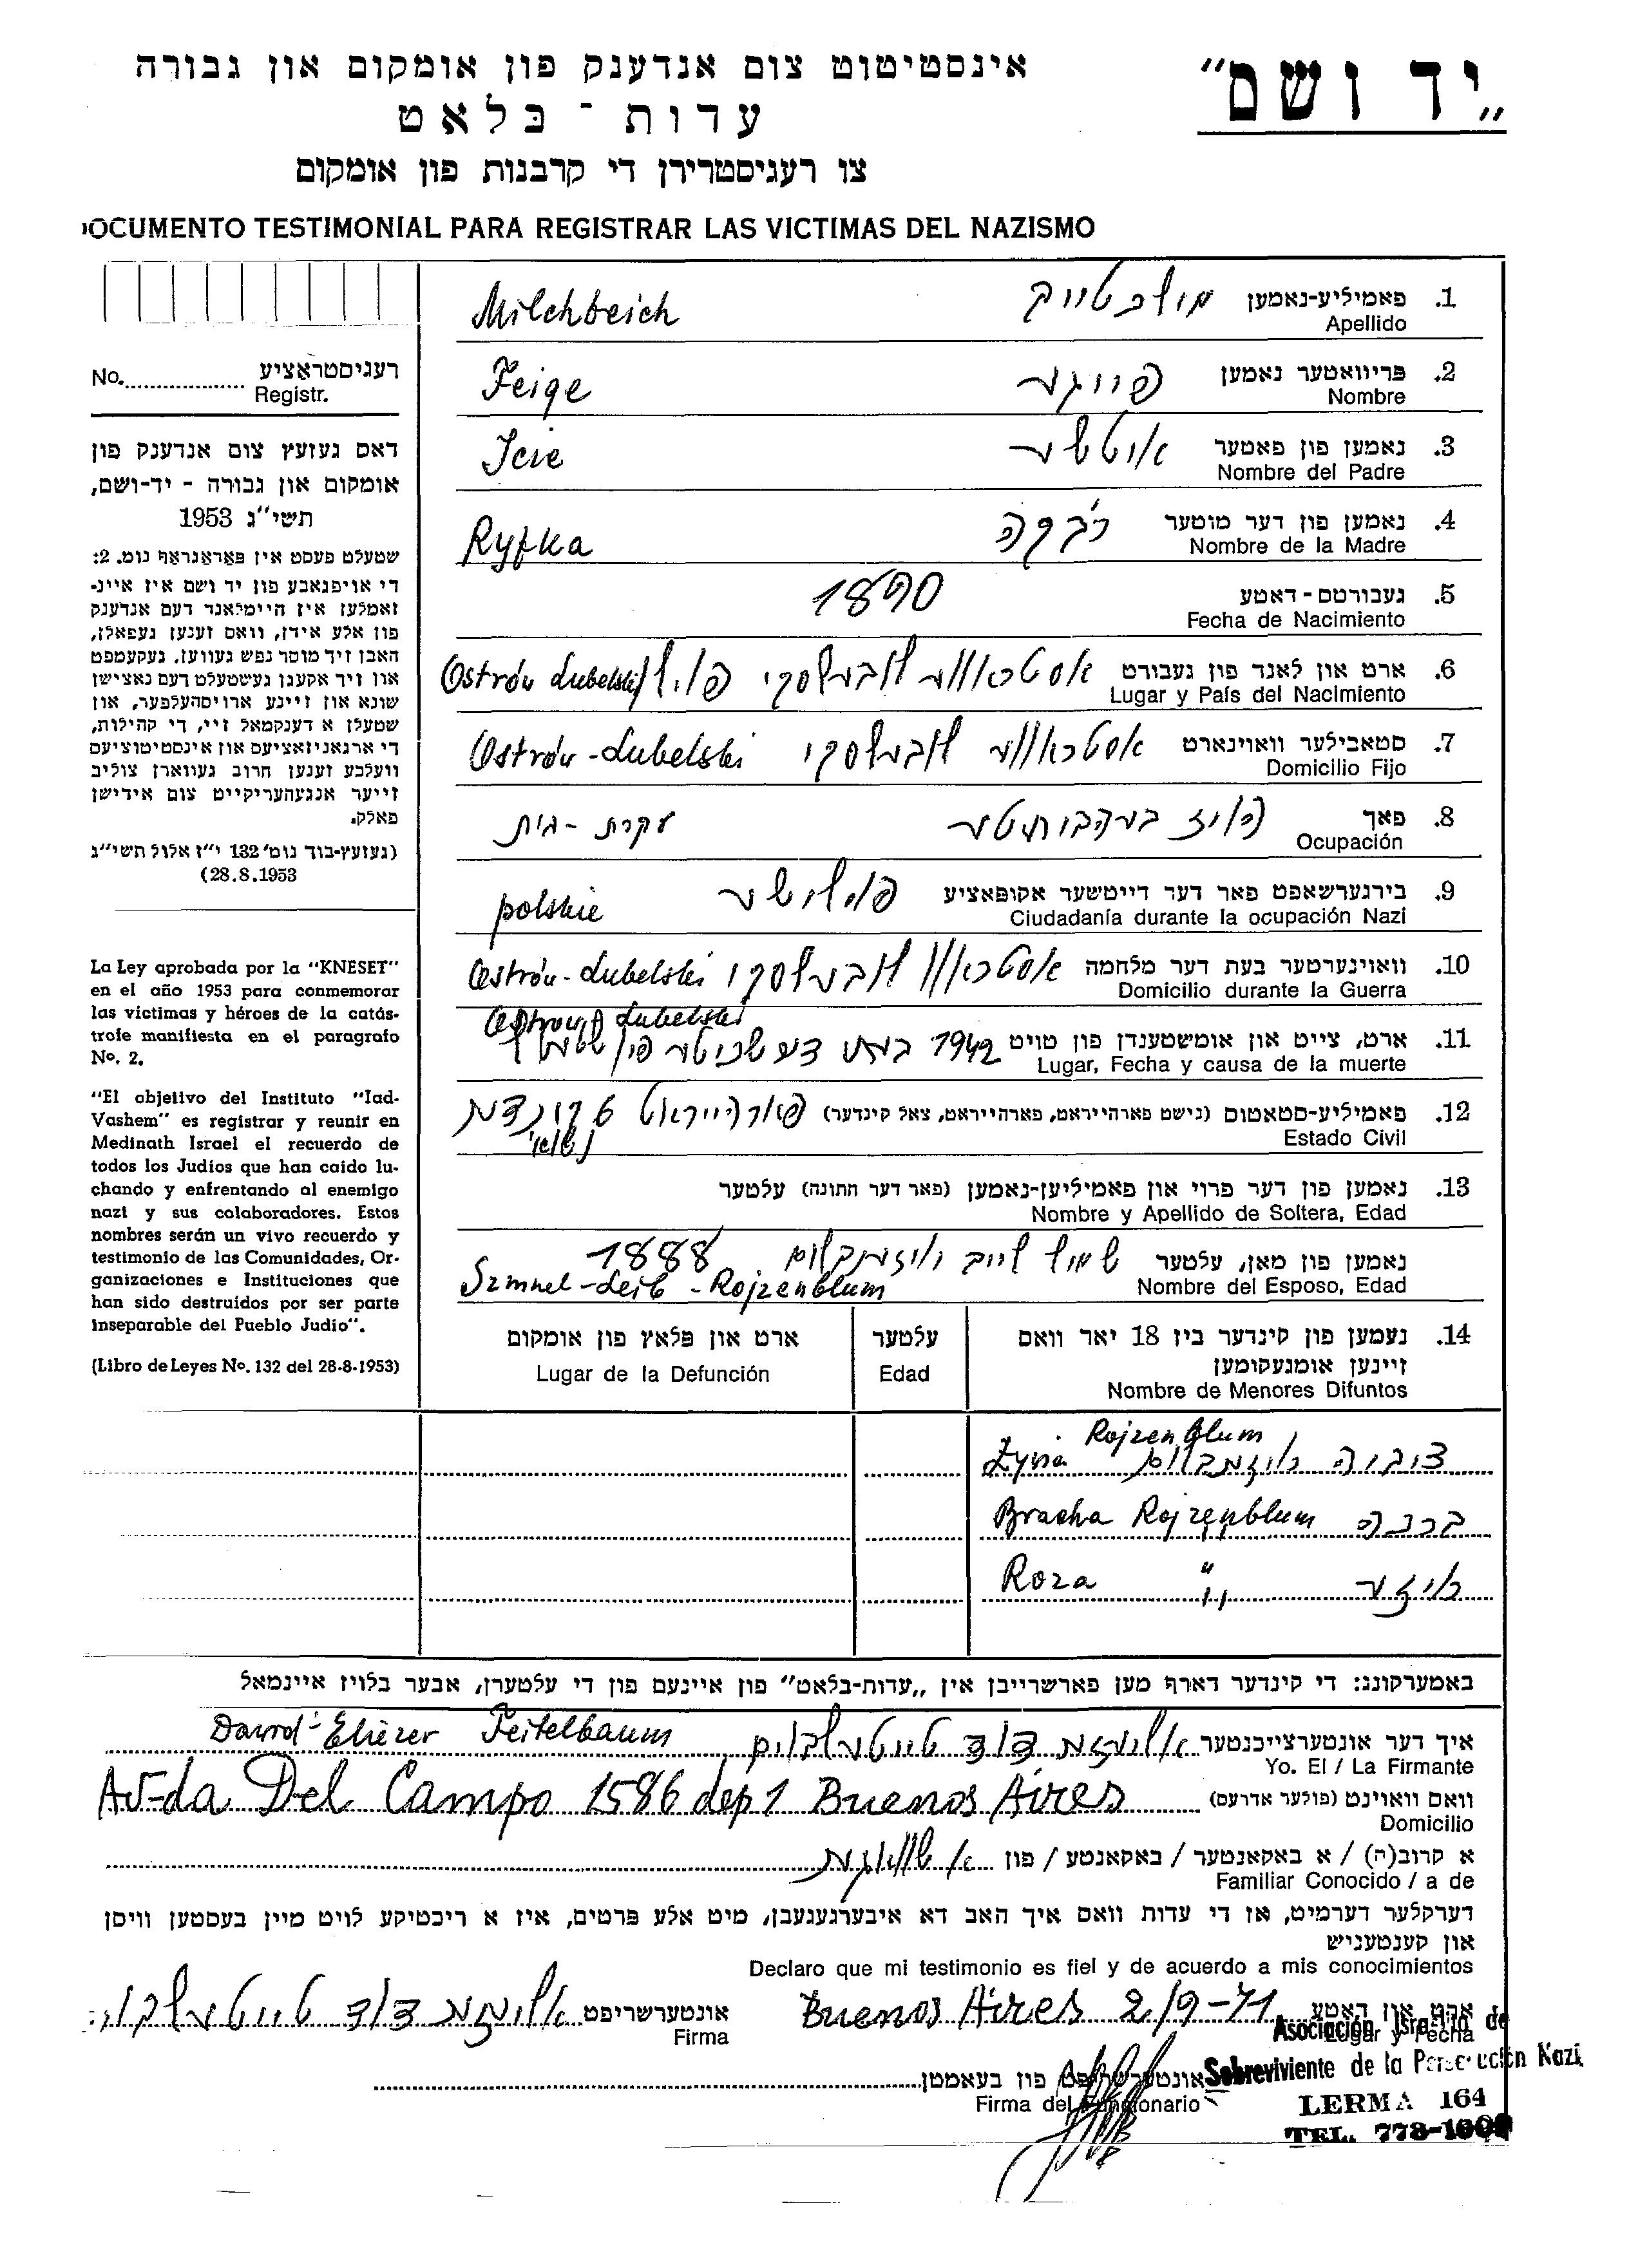 „יד ושם"
אינסטיטוט צום אנדענק פון אומקום און גבורה
עדות-בלאט
צו רעגיסטרירן די קרבנות פון אומקום
OCUMENTO TESTIMONIAL PARA REGISTRAR LAS VICTIMAS DEL NAZISMO
רעגיסטראַציע
No. Registr.
דאס געזעץ צום אנדענק פון
אומקום און גבורה - יד-ושם,
תשי"ג 1953
שטעלט פעסט אין פּאַראַגראַף נומ. 2:
די אויפגאבע פון יד ושם איז איינ-
זאמלען אין היימלאנד דעם אנדענק
פון אלע אידן, וואס זענען געפאלן,
האבן זיך מוסר נפש געווען, געקעמפט
און זיך אקעגן געשטעלט דעם נאצישן
שונא און זיינע ארויסהעלפער, און
שטעלן א דענקמאל זיי, די קהילות,
די ארגאניזאציעס און אינסטיטוציעס
וועלכע זענען חרוב געווארן צוליב
זייער אנגעהעריקייט צום אידישן
פאלק.
(געזעץ-בוך נומ' 132 י"ז אלול תשי"ג
(28.8.1953
La Ley aprobada por la "KNESET"
en el año 1953 para conmemorar
las victimas y héroes de la catás-
trofe manifiesta en el paragrafo
Nº. 2.
"El objetivo del Instituto "Iad-
Vashem" es registrar y reunir en
Medinath Israel el recuerdo de
todos los Judíos que han caido lu-
chando y enfrentando al enemigo
nazi y sus colaboradores. Estos
nombres serán un vivo recuerdo y
testimonio de las Comunidades, Or-
ganizaciones e Instituciones que
han sido destruídos por ser parte
inseparable del Pueblo Judío".
(Libro de Leyes Nº. 132 del 28-8-1953)
1. פאמיליע-נאמען Milchteich
Apellido
2. פריוואטער נאמען פייגע Feige
Nombre
3. נאמען פון פאטער
Nombre del Padre
4. נאמען פון דער מוטער רבקה Ryfka
Nombre de la Madre
5. געבורטס-דאטע 1890
Fecha de Nacimiento
6. ארט און לאנד פון געבורט אסטראווע לובעלסקי פוילן Ostrów Lubelski
Lugar y País del Nacimiento
7. סטאבילער וואוינארט אסטראווע לובעלסקי Ostrów-Lubelski
Domicilio Fijo
8. פאך עקרת-בית
Ocupación
9. בירגערשאפט פאר דער דייטשער אקופאציע פוילישע polskie
Ciudadanía durante la ocupación Nazi
10. וואוינערטער בעת דער מלחמה אסטראוו לובעלסקי Ostrów-Lubelski
Domicilio durante la Guerra
Ostrów Lubelski
11. ארט, צייט און אומשטענדן פון טויט 1942
Lugar, Fecha y causa de la muerte
12. פאמיליע-סטאטוס (נישט פארהייראט, פארהייראט, צאל קינדער) פארהייראט
Estado Civil
13. נאמען פון דער פרוי און פאמיליען-נאמען (פאר דער חתונה) עלטער
Nombre y Apellido de Soltera, Edad
נאמען פון מאן, עלטער שמול לייב רויזענבלום 1888
Nombre del Esposo, Edad Szmuel-Leib-Rojzenblum
14. נעמען פון קינדער ביז 18 יאר וואס עלטער ארט און פלאץ פון אומקום
זיינען אומגעקומען
Nombre de Menores Difuntos Edad Lugar de la Defunción
Rojzenblum
רויזענבלום
Bracha Rojzenblum ברכה
Roza " רויזע
באמערקונג: די קינדער דארף מען פארשרייבן אין „עדות-בלאט" פון איינעם פון די עלטערן, אבער בלויז איינמאל
איך דער אונטערצייכנטער אליעזר דוד טייטעלבוים Dawid-Eliezer Teitelbaum
Yo. El / La Firmante
וואס וואוינט (פולער אדרעס) Av-da Del Campo 1586 dep 1 Buenos Aires
Domicilio
א קרוב(ה) / א באקאנטער / באקאנטע / פון
Familiar Conocido / a de
דערקלער דערמיט, אז די עדות וואס איך האב דא איבערגעגעבן, מיט אלע פרטים, איז א ריכטיקע לויט מיין בעסטען וויסן
און קענטעניש
Declaro que mi testimonio es fiel y de acuerdo a mis conocimientos
ארט און דאטע Buenos Aires 2/9-71 אונטערשריפט אליעזר דוד טייטעלבוים
Lugar y Fecha Firma
אונטערשריפט פון בעאמטן
Firma del Funcionario
Asociación Israelita de
Sobreviviente de la Persecución Nazi
LERMA 164
TEL. 773-